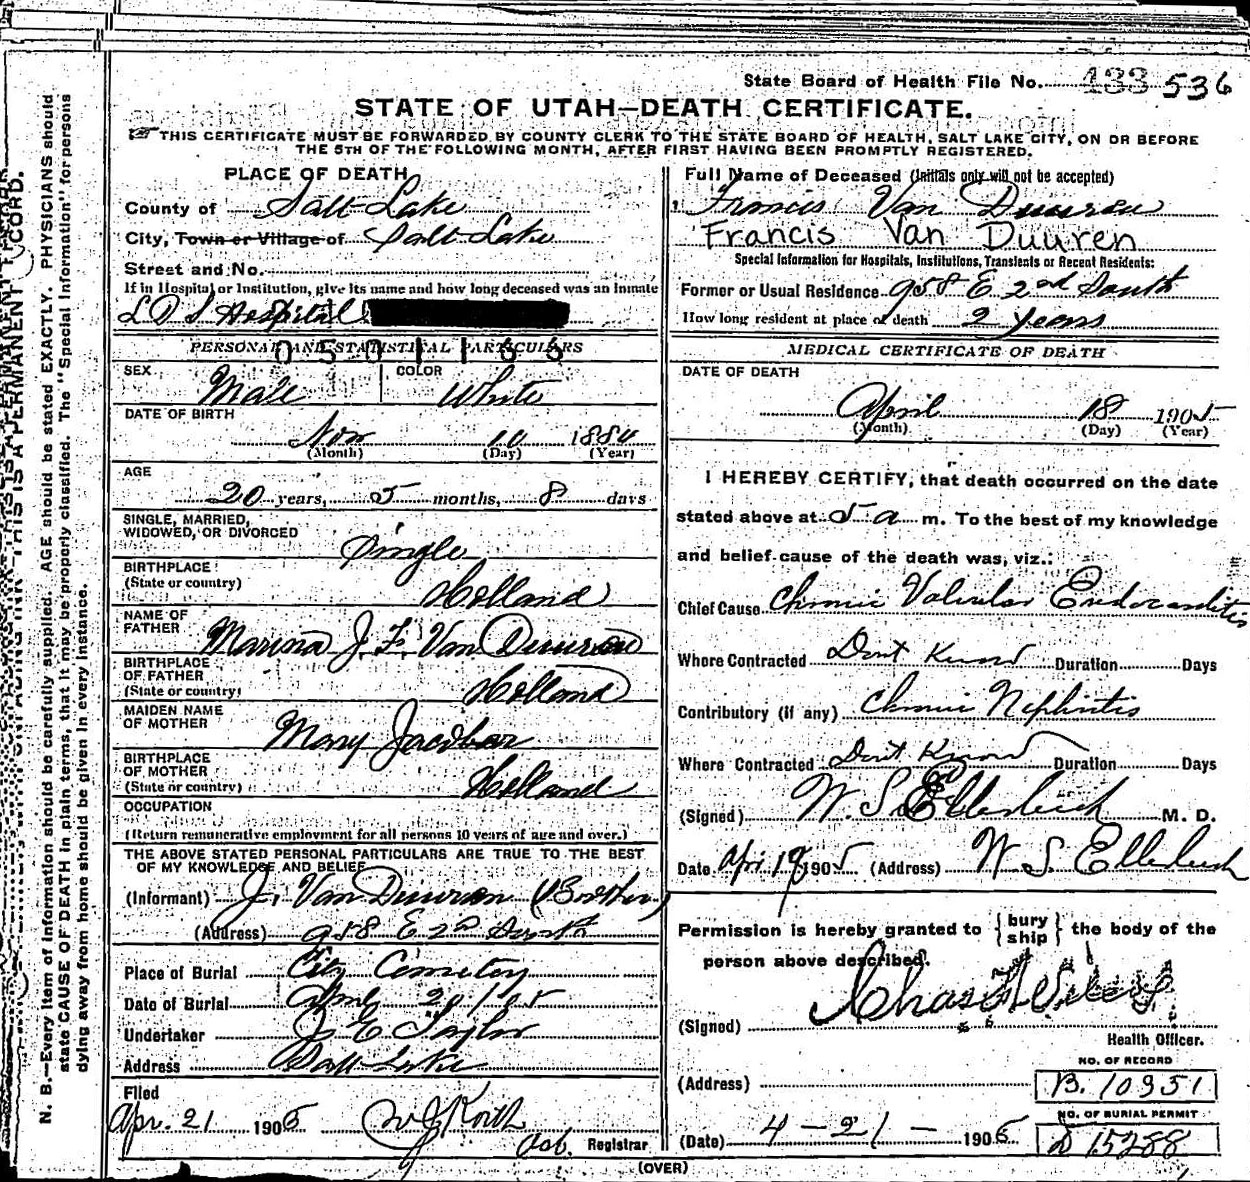 State Board of Health File No. 433 536
STATE OF UTAH—DEATH CERTIFICATE.
THIS CERTIFICATE MUST BE FORWARDED BY COUNTY CLERK TO THE STATE BOARD OF HEALTH, SALT LAKE CITY, ON OR BEFORE
THE 5TH OF THE FOLLOWING MONTH, AFTER FIRST HAVING BEEN PROMPTLY REGISTERED.
PLACE OF DEATH
County of Salt Lake
City, Town or Village of Salt Lake
Street and No.
If in Hospital or Institution, give its name and how long deceased was an inmate
L D S Hospital
PERSONAL AND STATISTICAL PARTICULARS
0501166
SEX Male COLOR White
DATE OF BIRTH
Nov 10 1884
(Month) (Day) (Year)
AGE
20 years, 5 months, 8 days
SINGLE, MARRIED,
WIDOWED, OR DIVORCED Single
BIRTHPLACE
(State or country) Holland
NAME OF
FATHER J. F. Van Duuren
BIRTHPLACE
OF FATHER
(State or country) Holland
MAIDEN NAME
OF MOTHER Mary
BIRTHPLACE
OF MOTHER
(State or country) Holland
OCCUPATION
(Return remunerative employment for all persons 10 years of age and over.)
THE ABOVE STATED PERSONAL PARTICULARS ARE TRUE TO THE BEST
OF MY KNOWLEDGE AND BELIEF
(Informant) J. Van Duuren (Brother)
(Address) 958 E 2nd South
Place of Burial City Cemetery
Date of Burial April 20 1905
Undertaker J E Taylor
Address Salt Lake
Filed
Apr. 21 1905
Registrar
Full Name of Deceased (Initials only will not be accepted)
1 Francis Van Duuren
Francis Van Duuren
Special Information for Hospitals, Institutions, Transients or Recent Residents:
Former or Usual Residence 958 E 2nd South
How long resident at place of death 2 years
MEDICAL CERTIFICATE OF DEATH
DATE OF DEATH
April 18 1905
(Month) (Day) (Year)
I HEREBY CERTIFY, that death occurred on the date
stated above at 5 a m. To the best of my knowledge
and belief cause of the death was, viz.:
Chief Cause Chronic Valvular Endocarditis
Where Contracted Dont Know Duration Days
Contributory (if any) Chronic Nephritis
Where Contracted Dont Know Duration Days
(Signed) W. S. Ellerbeck M. D.
Date Apr 19 1905 (Address) W S Ellerbeck
Permission is hereby granted to {bury
ship} the body of the
person above described.
(Signed) Chas
Health Officer.
NO. OF RECORD
(Address) B. 10951
NO. OF BURIAL PERMIT
(Date) 4-21-1905 D 15288
(OVER)
N. B.—Every item of information should be carefully supplied. AGE should be stated EXACTLY. PHYSICIANS should
state CAUSE OF DEATH in plain terms, that it may be properly classified. The "Special Information" for persons
dying away from home should be given in every instance.
THIS IS A PERMANENT RECORD.